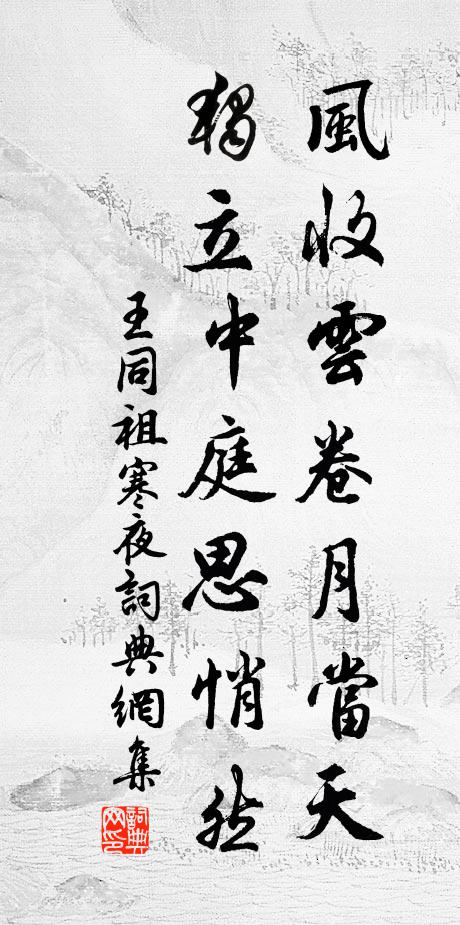 風收雲卷月當天
獨立中庭思悄然
王同祖寒夜詞典網集
詞典网印